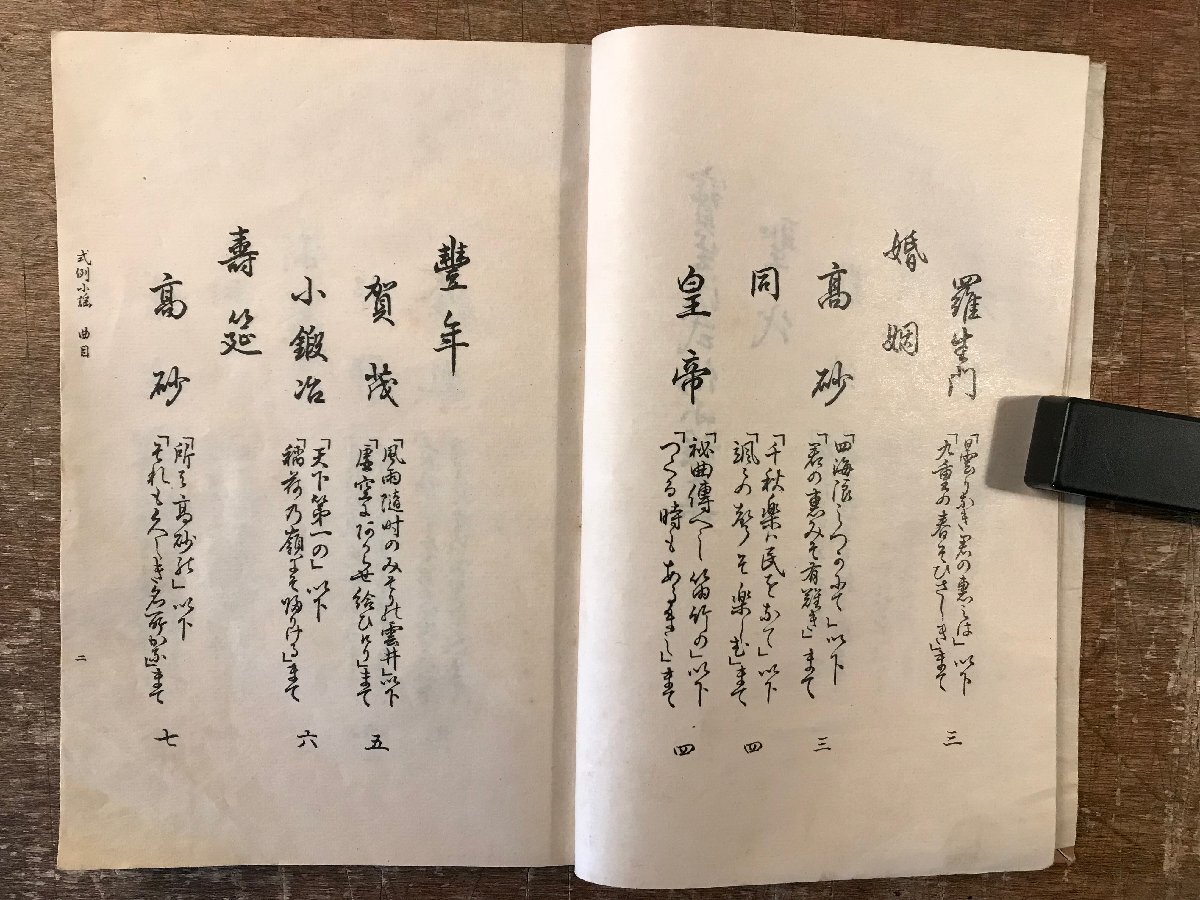 羅生門
「曇りなき君の惠みは」以下
「九重の春そひさしき」まて
三
婚姻
高砂
「四海浪しつかにて」以下
「君の惠みそ有難き」まて
三
同
「千秋楽ハ民をなて」以下
「颯々の声そ楽しむ」まて
四
皇帝
「祕曲傳へし笛竹の」以下
「つくる時もあるまし」まて
四
豐年
賀茂
「風雨隨時のみそらの雲井」以下
「虚空にあからせ給ひけり」まて
五
小鍛冶
「天下第一の」以下
「稲荷乃嶺にそ帰りける」まて
六
壽筵
高砂
「所は高砂の」以下
「それも久しき名所かな」まて
七
式例小謡 曲目
二